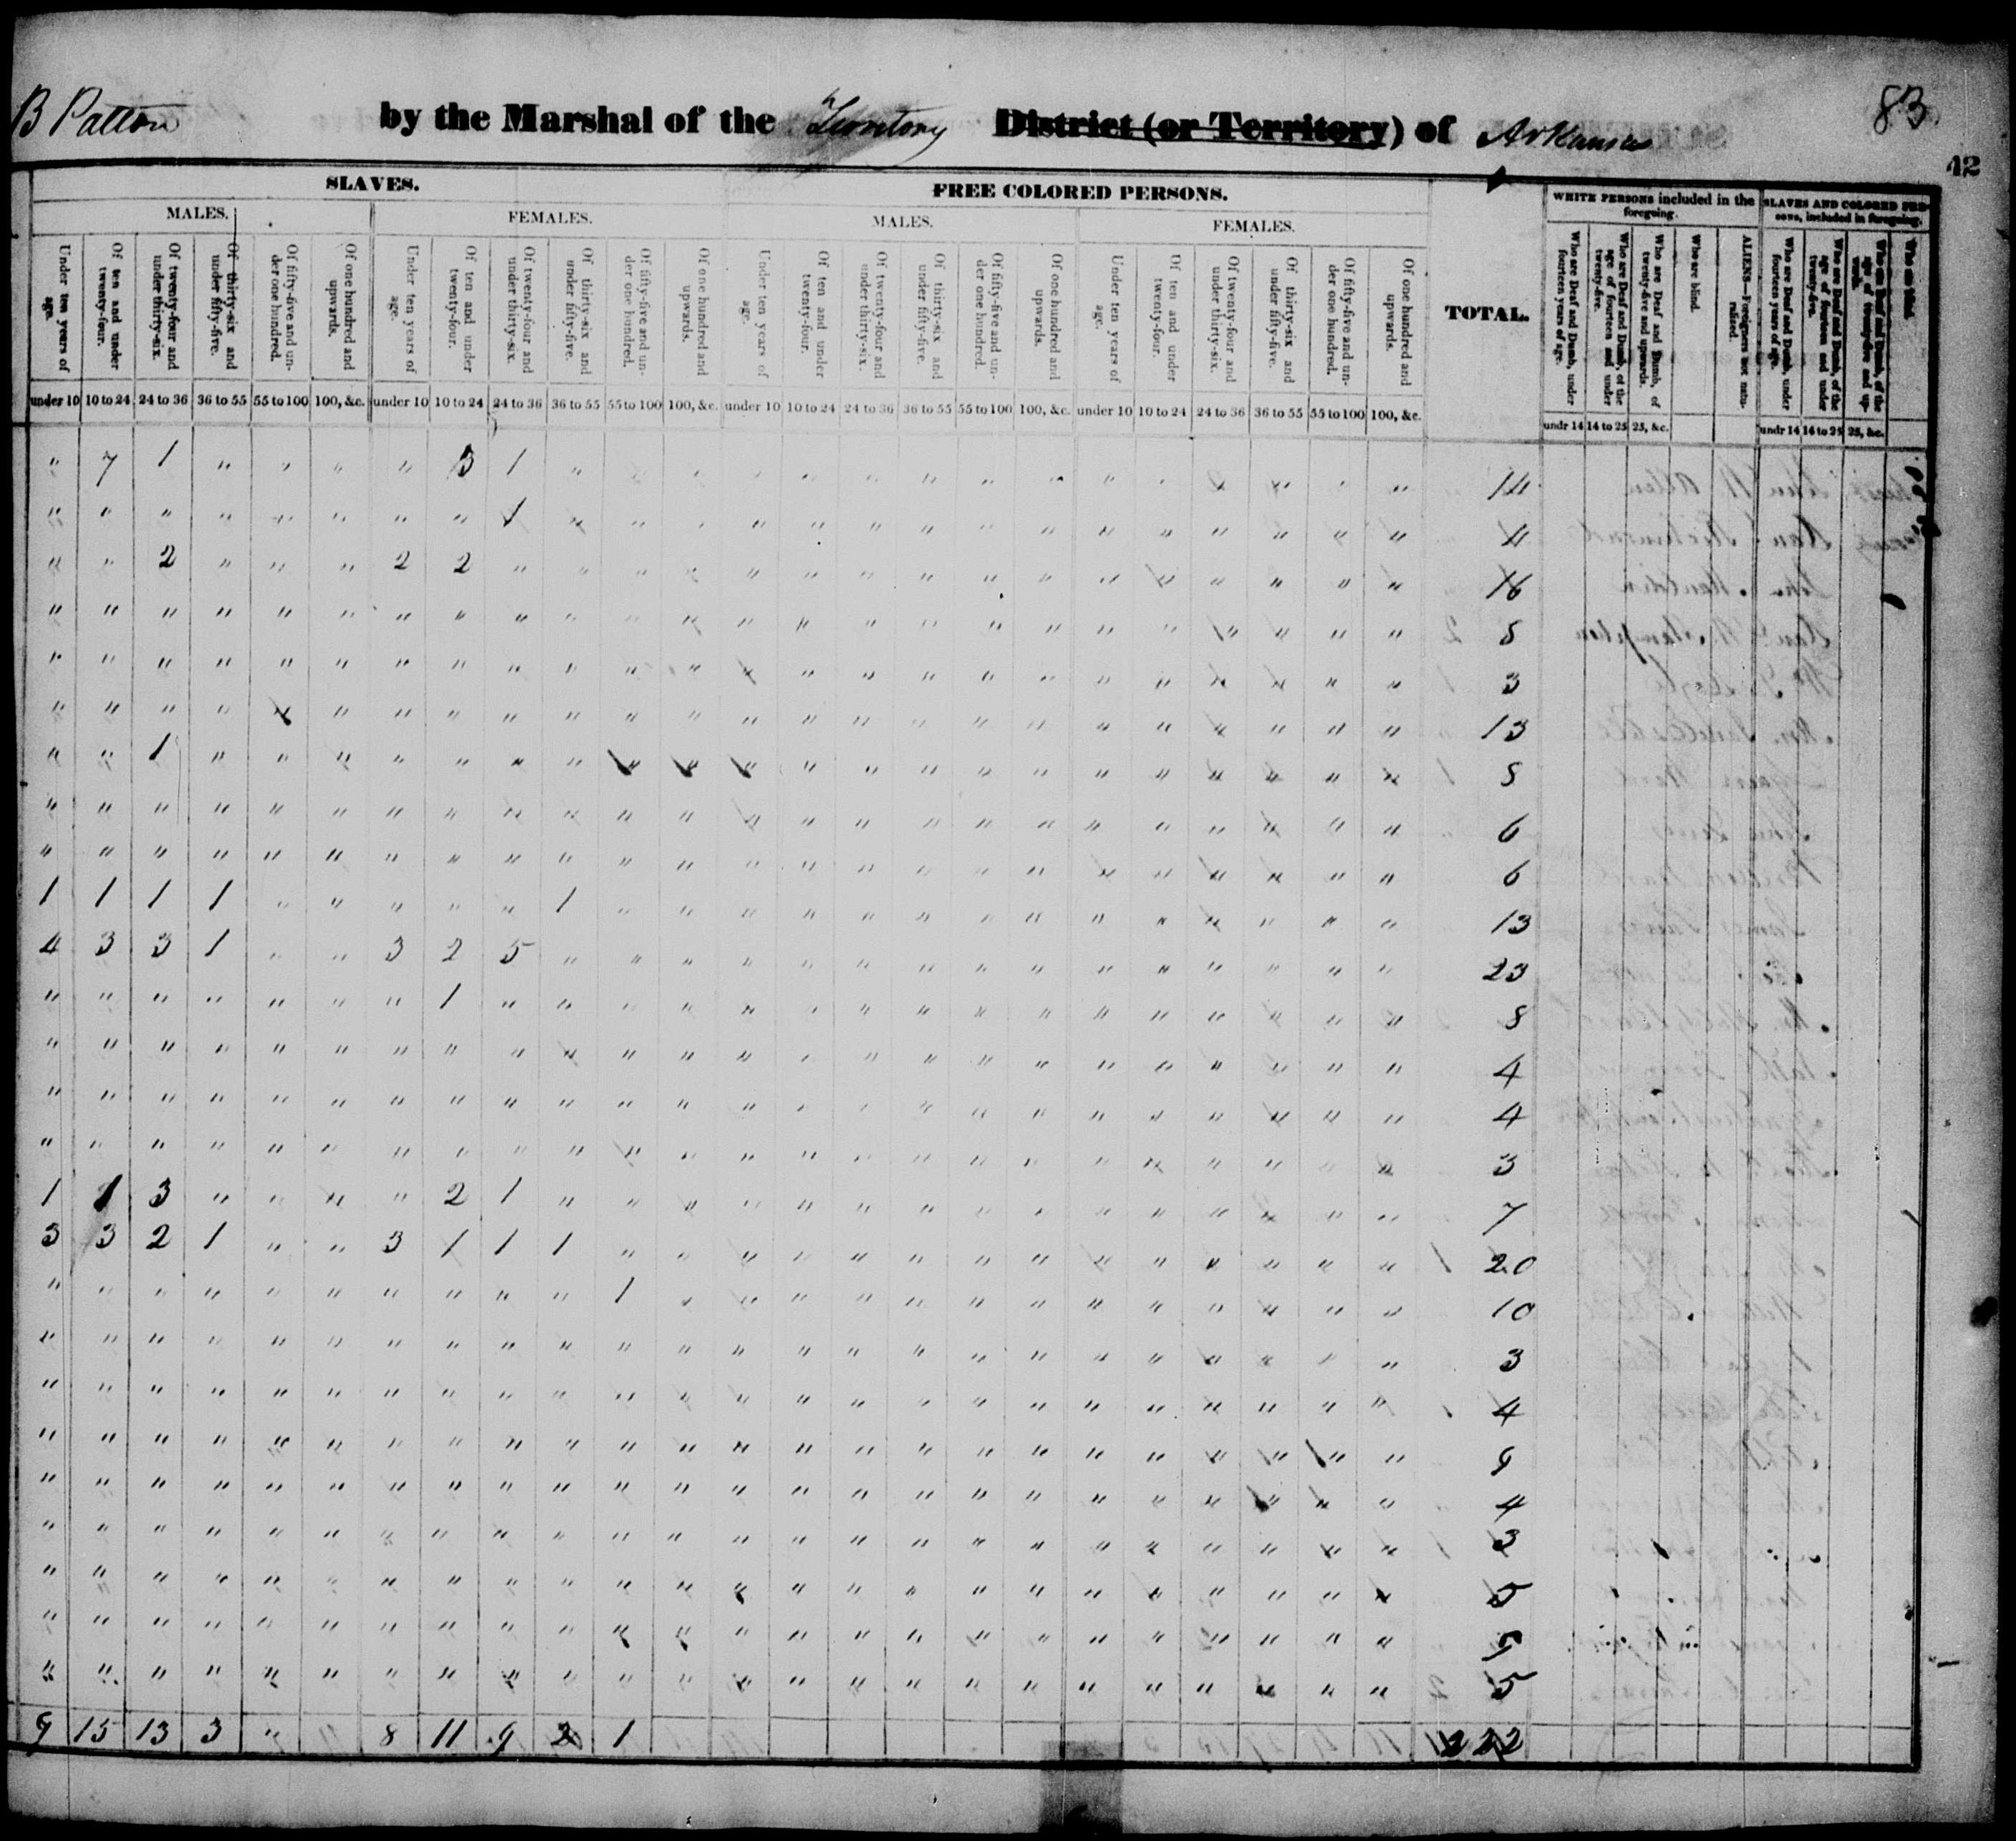 B Patton by the Marshal of the Territory District (or Territory) of Arkansas 83
42
SLAVES. FREE COLORED PERSONS. TOTAL. WHITE PERSONS included in the foregoing. SLAVES AND COLORED PERSONS, included in foregoing.
MALES. FEMALES. MALES. FEMALES.
Under ten years of age.
Of ten and under twenty-four.
Of twenty-four and under thirty-six.
Of thirty-six and under fifty-five.
Of fifty-five and under one hundred.
Of one hundred and upwards.
Under ten years of age.
Of ten and under twenty-four.
Of twenty-four and under thirty-six.
Of thirty-six and under fifty-five.
Of fifty-five and under one hundred.
Of one hundred and upwards.
Under ten years of age.
Of ten and under twenty-four.
Of twenty-four and under thirty-six.
Of thirty-six and under fifty-five.
Of fifty-five and under one hundred.
Of one hundred and upwards.
Under ten years of age.
Of ten and under twenty-four.
Of twenty-four and under thirty-six.
Of thirty-six and under fifty-five.
Of fifty-five and under one hundred.
Of one hundred and upwards.
Who are Deaf and Dumb, under fourteen years of age.
Who are Deaf and Dumb, of the age of fourteen and under twenty-five.
Who are Deaf and Dumb, of twenty-five and upwards.
Who are blind.
ALIENS—Foreigners not naturalized.
Who are Deaf and Dumb, under fourteen years of age.
Who are Deaf and Dumb, of the age of fourteen and under twenty-five.
Who are Deaf and Dumb, of the age of twenty-five and upwards.
Who are blind.
under 10 10 to 24 24 to 36 36 to 55 55 to 100 100, &c. under 10 10 to 24 24 to 36 36 to 55 55 to 100 100, &c. under 10 10 to 24 24 to 36 36 to 55 55 to 100 100, &c. under 10 10 to 24 24 to 36 36 to 55 55 to 100 100, &c. undr 14 14 to 25 25, &c. undr 14 14 to 25 25, &c.
" 7 1 " " " " 3 1 " " " " " " " " " " " " " " " 14
" " " " " " " " 1 " " " " " " " " " " " " " " " 4
" " 2 " " " 2 2 " " " " " " " " " " " " " " " " 16
" " " " " " " " " " " " " " " " " " " " " " " " 8
" " " " " " " " " " " " " " " " " " " " " " " " 3
" " " " " " " " " " " " " " " " " " " " " " " " 13
" " 1 " " " " " " " " " " " " " " " " " " " " " 8
" " " " " " " " " " " " " " " " " " " " " " " " 6
" " " " " " " " " " " " " " " " " " " " " " " " 6
1 1 1 1 " " " " " 1 " " " " " " " " " " " " " " 13
4 3 3 1 " " 3 2 5 " " " " " " " " " " " " " " " 23
" " " " " " " 1 " " " " " " " " " " " " " " " " 8
" " " " " " " " " " " " " " " " " " " " " " " " 4
" " " " " " " " " " " " " " " " " " " " " " " " 4
" " " " " " " " " " " " " " " " " " " " " " " " 3
1 1 3 " " " " 2 1 " " " " " " " " " " " " " " " 7
3 3 2 1 " " 3 1 1 1 " " " " " " " " " " " " " " 20
" " " " " " " " " " 1 " " " " " " " " " " " " " 10
" " " " " " " " " " " " " " " " " " " " " " " " 3
" " " " " " " " " " " " " " " " " " " " " " " " 4
" " " " " " " " " " " " " " " " " " " " " " " " 9
" " " " " " " " " " " " " " " " " " " " " " " " 4
" " " " " " " " " " " " " " " " " " " " " " " " 3
" " " " " " " " " " " " " " " " " " " " " " " " 5
" " " " " " " " " " " " " " " " " " " " " " " " 9
" " " " " " " " " " " " " " " " " " " " " " " " 5
9 15 13 3 " 8 11 9 2 1 222